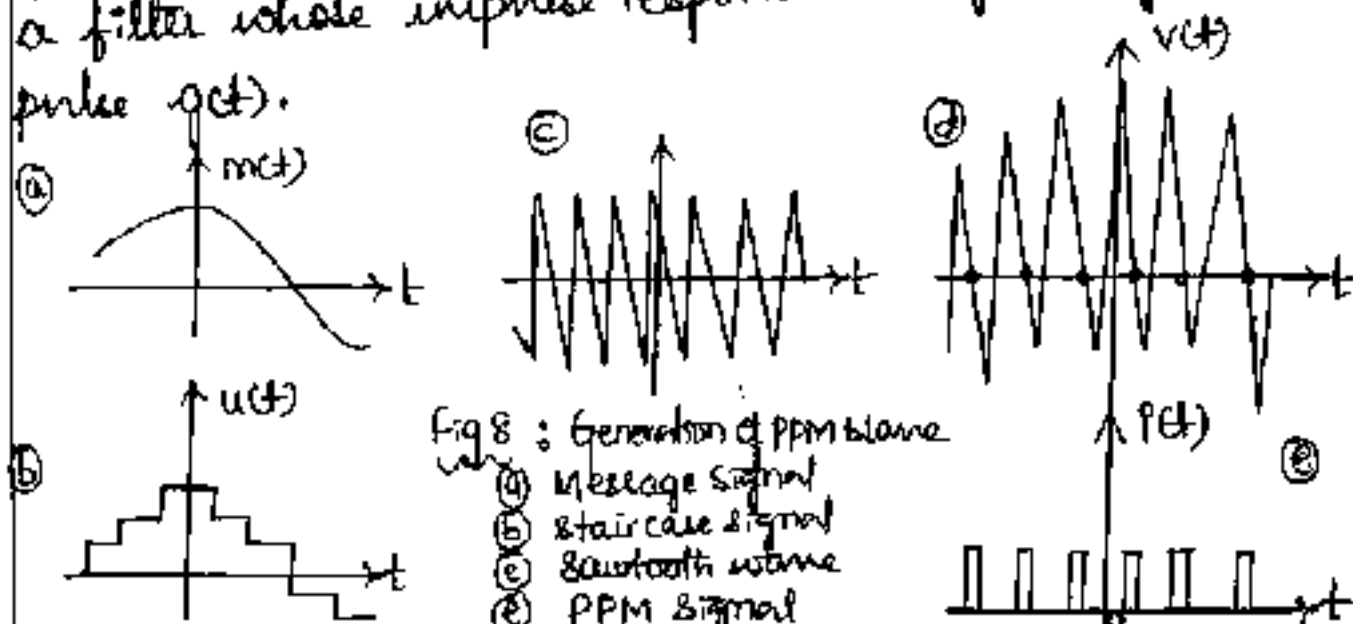 a filter whose impulse
pulse g(t).
(a) m(t)
t
(c)
t
(d) v(t)
t
(b) u(t)
t
Fig 8 : Generation of PPM wave
(a) Message signal
(b) staircase signal
(c) Sawtooth wave
(e) PPM Signal
P(t)
(e)
t